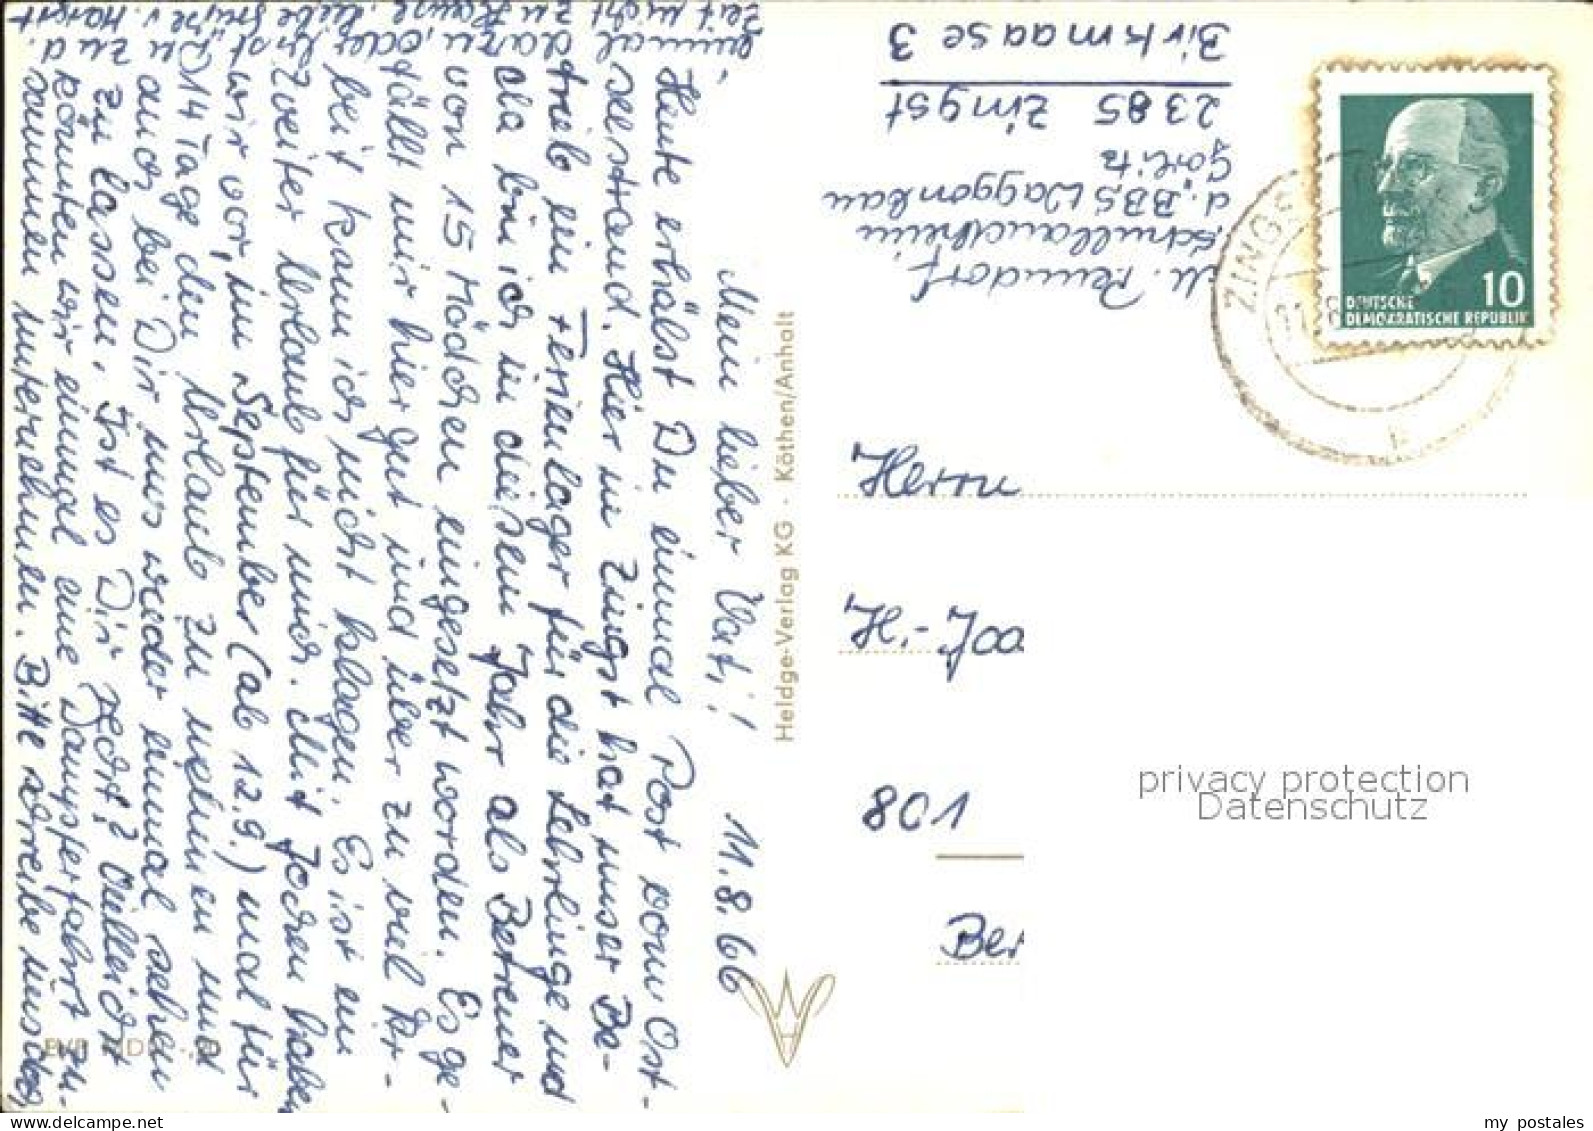 Mein lieber Vati! 11.8.66
Heute erhälst Du einmal Post vom Ost-
seestrand. Hier in Zingst hat unser Be-
trieb ein Ferienlager für die Lehrlinge und
da bin ich in diesem Jahr als Betreuer
von 15 Mädchen eingesetzt worden. Es ge-
fällt mir hier gut und über zu viel Ar-
beit kann ich nicht klagen. Es ist ein
zweiter Urlaub für mich. Mit Jochen haben
wir vor, im September (ab 12.9.) und für
14 Tage den Urlaub zu nehmen und
auch bei Dir uns wieder einmal sehen
zu lassen. Ist es Dir recht? Vielleicht
könnten wir einmal eine Dampferfahrt zu-
sammen unternehmen. Bitte schreibe uns doch
einmal dazu, oder bist Du zu d.
Zeit nicht zu Hause. Liebe Grüße v. Margot
Heldge-Verlag KG · Köthen/Anhalt
M. Penndorf
Schullandheim
d. BBS Waggonbau
Görlitz
2385 Zingst
Birkmaase 3
ZINGS
DEUTSCHE
DEMOKRATISCHE REPUBLIK
10
Herrn
H.-Joa
801
Ber
privacy protection
Datenschutz
my postales